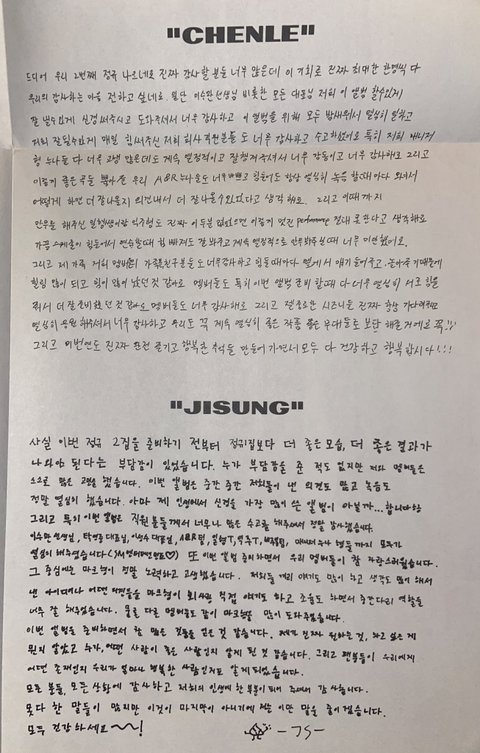 "CHENLE"
드디어 우리 2번째 정규 나오네요 진짜 감사할 분들 너무 많은데 이 기회로 진짜 최대한 한명씩 다
우리의 감사하는 마음 전하고 싶네요. 일단 이수만 선생님 비롯한 모든 대표님 저희 이 앨범 할수있게
잘 낼수있게 신경써주시고 도와주셔서 너무 감사하고 이 앨범을 위해 모두 밤새워서 열심히 일하고
저희 잘될수있게 매일 힘써주신 저희 회사 직원분들도 너무 감사하고 수고하셨어요 특히 저희 매니저
형 누나들 다 너무 고생 많은데도 계속 열정적이고 잘챙겨주셔서 너무 감동이고 너무 감사해요 그리고
이렇게 좋은 곡들 뽑아준 우리 A&R누나들도 너무 힘들어도 항상 열심히 녹음 할때마다 와서
어떻게 하면 더 잘나올지 의견내서 더 잘나올수있었다고 생각해요. 그리고 이때까지
안무를 해주신 형이랑 형도 진짜 이 두분 없었으면 이렇게 멋진 performance 절대 못한다고 생각해요
가끔 스케줄이 힘들어서 연습할때 힘 빠져도 잘 봐주고 계속 열정적으로 안무 봐주실때 너무 미안했어요.
그리고 제 가족, 저희 멤버들의 가족친구분들도 너무감사하고 힘들때마다 옆에서 얘기 들어주고
힘이 많이 되고 힘이 많이 났던 것 같아요 멤버들도 특히 이번 앨범 준비할때 다 너무 열심히 서로 힘을
줘서 더 잘 준비했던 것 같아요 멤버들도 너무 감사해요 그리고 젤 중요한 시즈니들 진짜 항상 기다려주고
열심히 응원 해주셔서 너무 감사하고 우리도 꼭 계속 열심히 좋은 작품 좋은 무대들로 보답 해줄거에요 꼭!!
그리고 이번년도 진짜 끝까지 즐기고 행복한 추억들 만들어가면서 모두 다 건강하고 행복합시다!!!
"JISUNG"
사실 이번 정규 2집을 준비하기 전부터 정규1집보다 더 좋은 모습, 더 좋은 결과가
나와야 된다는 부담감이 있었습니다. 누가 부담감을 준 적도 없지만 저와 멤버들은
스스로 많은 고민을 했습니다. 이번 앨범은 중간 중간 저희들이 낸 의견도 많고 녹음도
정말 열심히 했습니다. 아마 제 인생에서 신경을 가장 많이 쓴 앨범이 아닐까...합니다하하
그리고 특히 이번 앨범은 직원분들께서 너무나 많은 수고를 해주셔서 정말 감사했습니다.
이수만 선생님, 탁영준 대표님, 이성수 대표님, A&R팀, 매니저 형들까지 모두가
열심히 해주셨습니다(SM엔터테인먼트♡) 또 이번 앨범 준비하면서 우리 멤버들이 참 자랑스러웠습니다.
그 중심에는 마크형이 정말 노력하고 고생했습니다. 저희들끼리 얘기도 많이 하고 생각도 많이 해서
낸 아이디어나 어떤 의견들을 마크형이 회사와 직접 얘기도 하고 조율도 하면서 중간다리 역할을
너무 잘 해주었습니다. 물론 다른 멤버들도 같이 마크형을 많이 도와주었습니다.
이번 앨범을 준비하면서 참 많은 것들을 얻은 것 같습니다. 제가 진짜 원하는 것, 하고 싶은 게
뭔지 알았고 누가, 어떤 사람이 좋은 사람인지 알게 된 것 같습니다. 그리고 팬분들이 우리에게
어떤 존재인지 우리가 얼마나 행복한 사람인지도 알게 되었습니다.
모든 분들, 모든 상황에 감사하고 저희의 인생에 한 부분이 되어 주셔서 감사합니다.
못다 한 말들이 많지만 이것이 마지막이 아니기에 저는 이만 말을 줄이겠습니다.
모두 건강하세요~~! -JS-